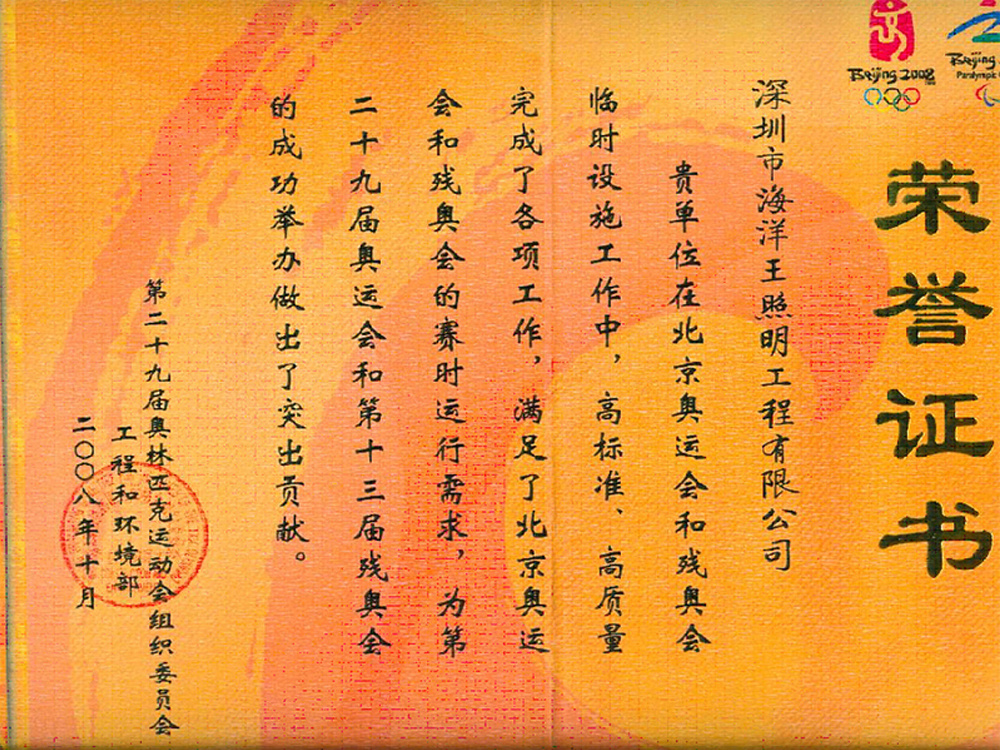 Beijing 2008
Beijing
Paralympic
荣誉证书
深圳市海洋王照明工程有限公司
贵单位在北京奥运会和残奥会
临时设施工作中，高标准、高质量
完成了各项工作，满足了北京奥运
会和残奥会的赛时运行需求，为第
二十九届奥运会和第十三届残奥会
的成功举办做出了突出贡献。
第二十九届奥林匹克运动会组织委员会
工程和环境部
二〇〇八年十月